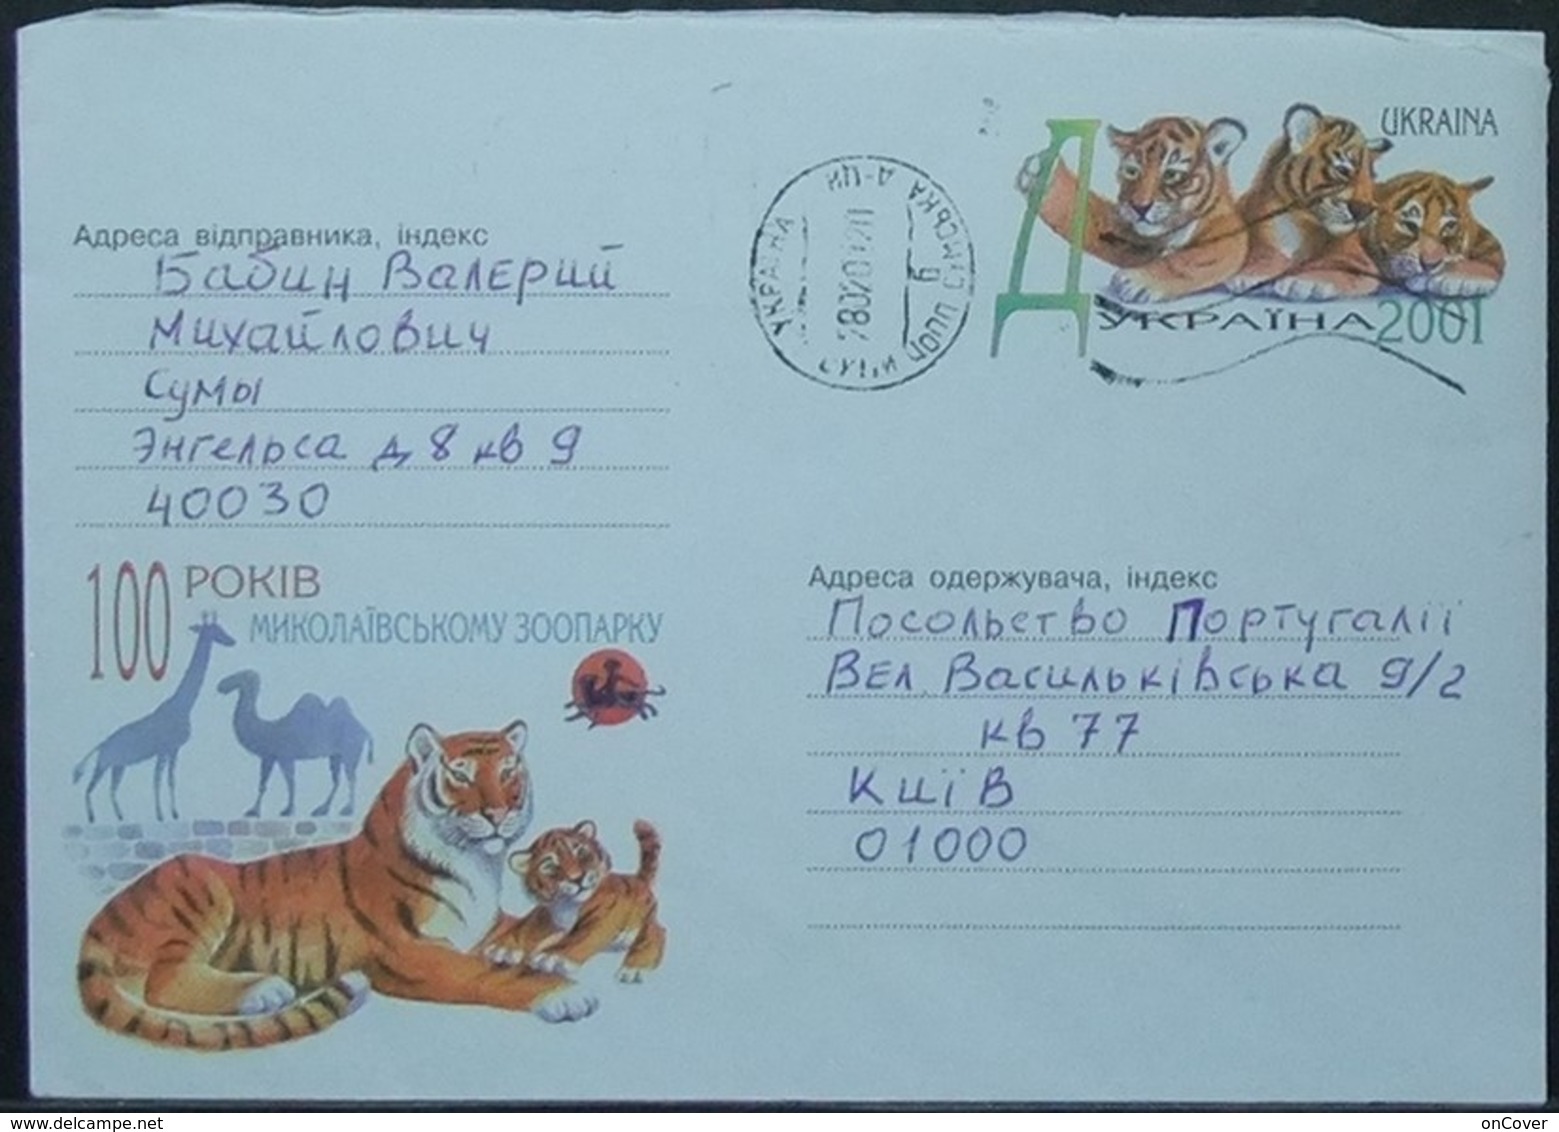 UKRAINA
Д
УКРАЇНА 2001
УКРАЇНА
Д-ЦЯ
Б
Адреса відправника, індекс
Бабин Валерий
Михайлович
Сумы
Энгельса д 8 кв 9
40030
100 РОКІВ
МИКОЛАЇВСЬКОМУ ЗООПАРКУ
Адреса одержувача, індекс
Посольство Португалії
Вел. Васильківська 9/2
кв 77
Київ
01000
delcampe.net
onCover